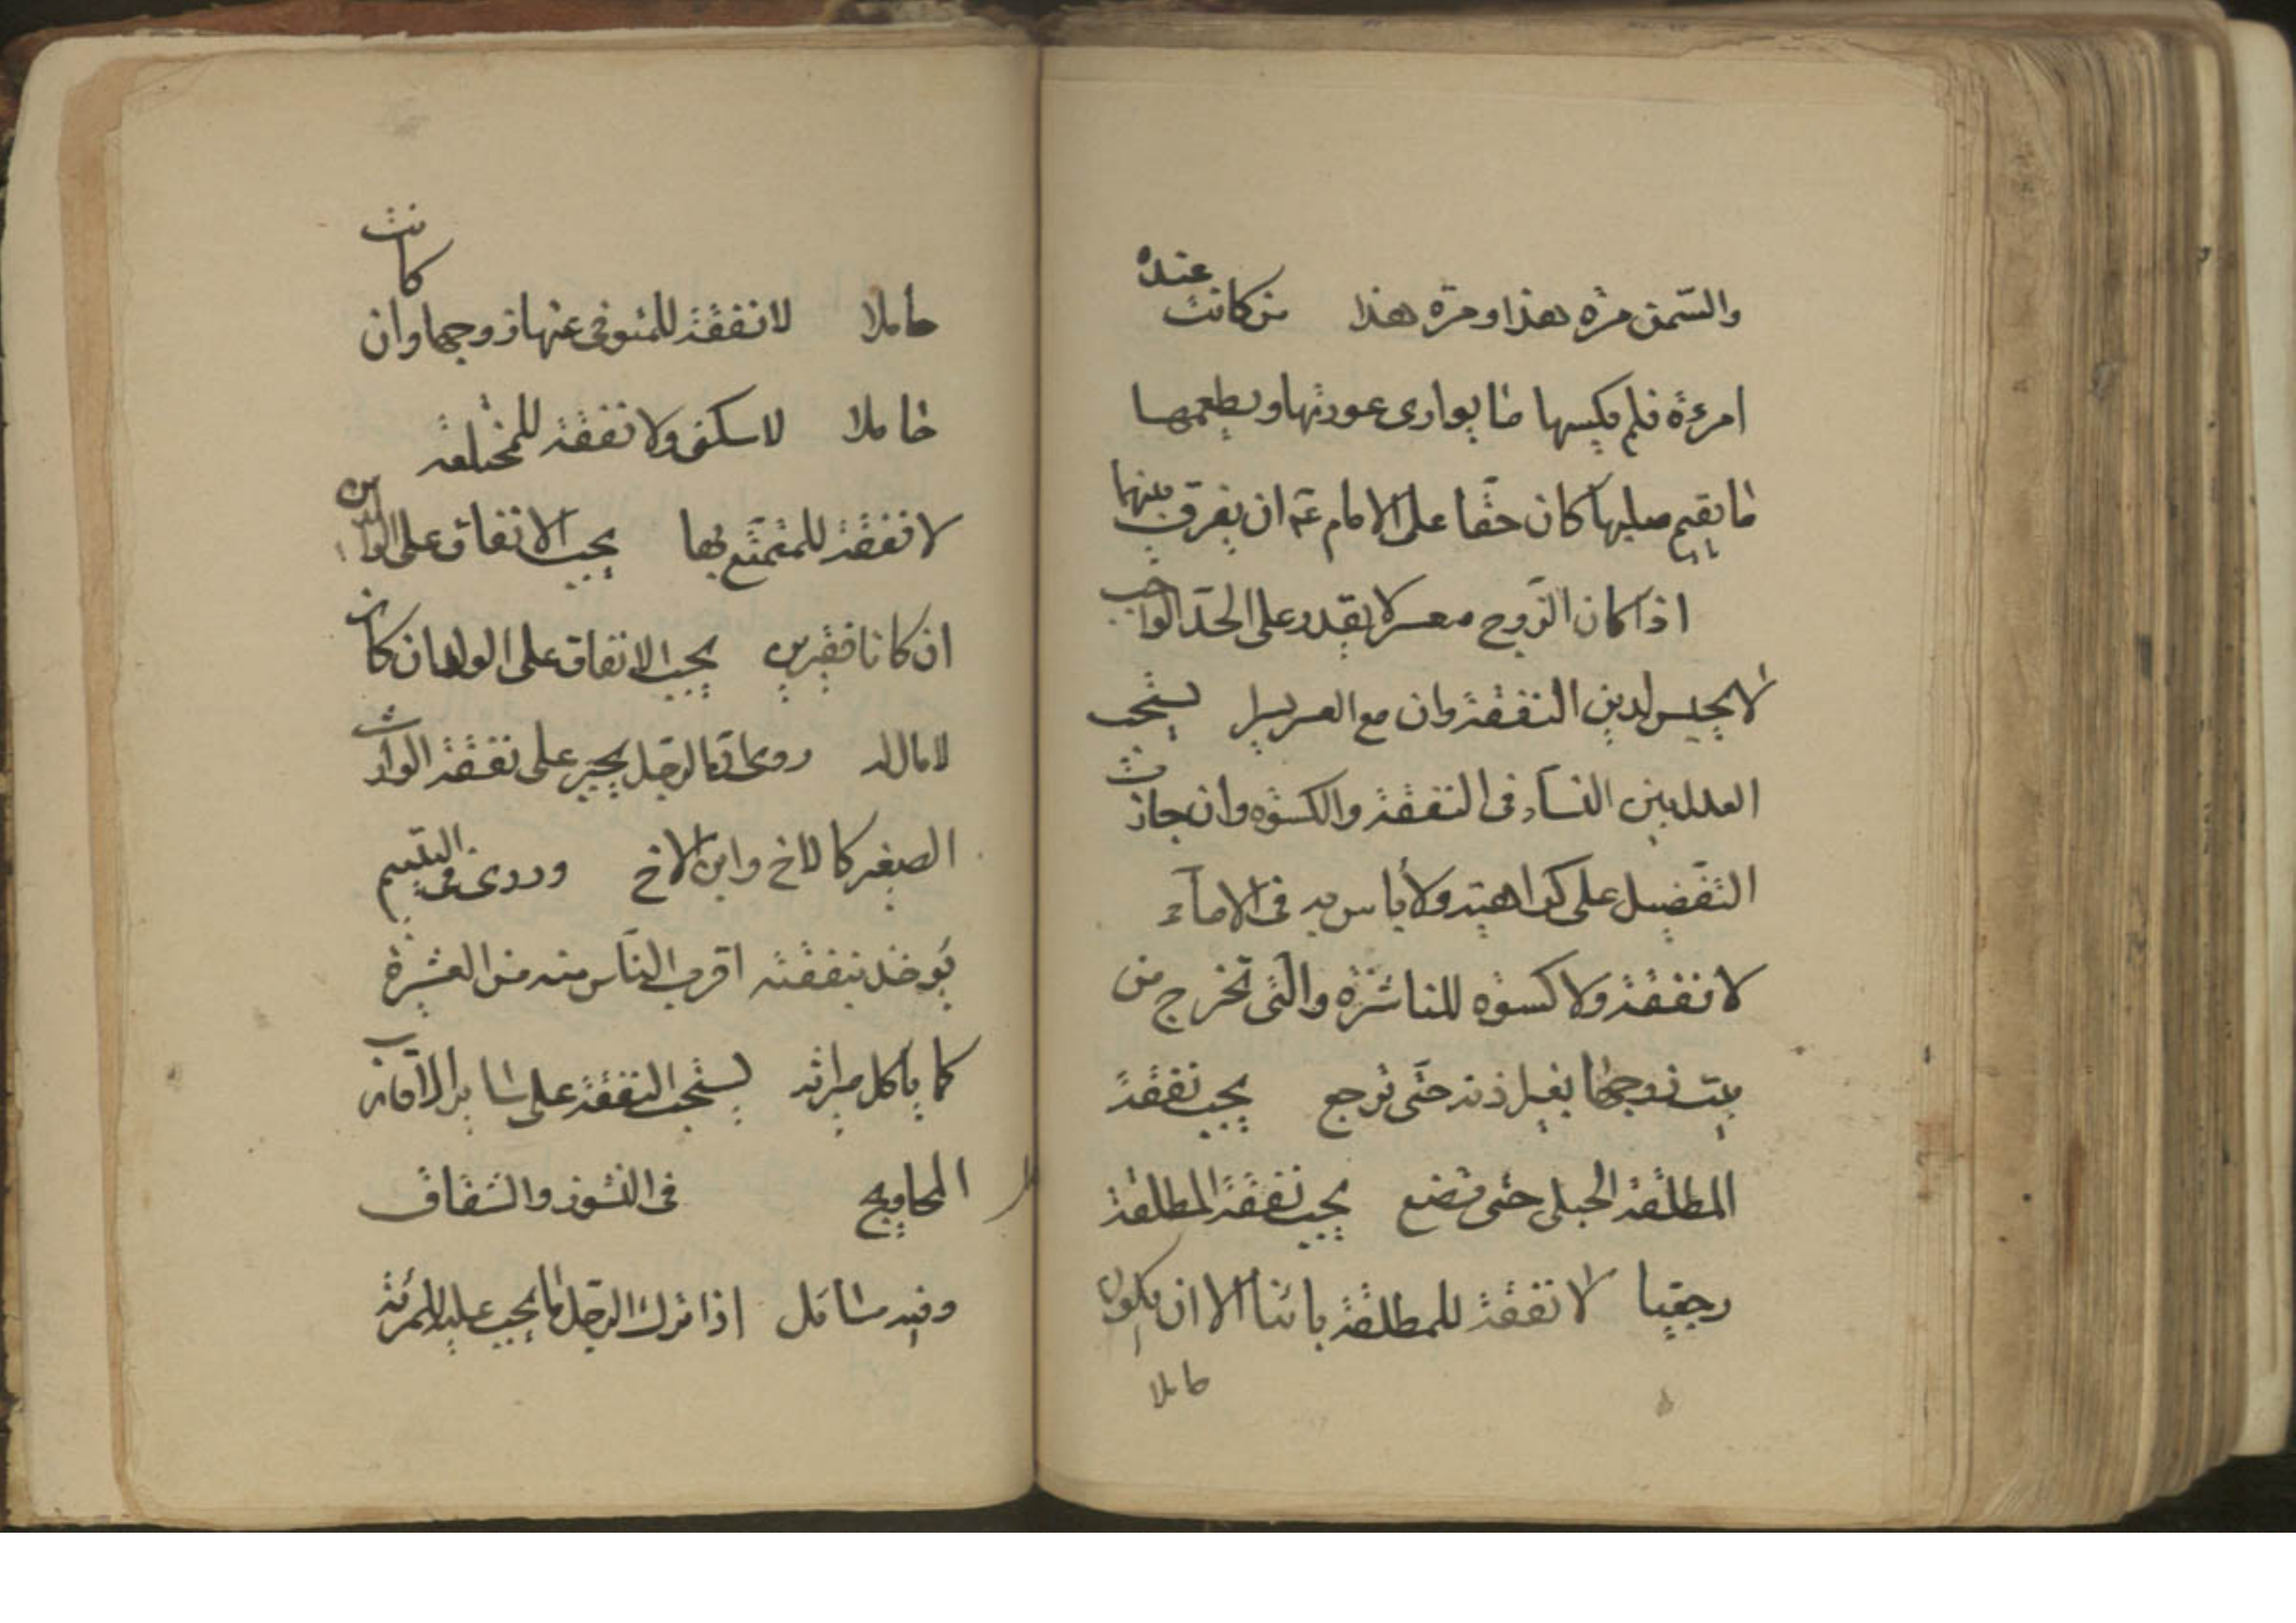 والسّمن مرّه هذا ومرّه هذا من كانت عنده
امرءة فلم يكسها ما يوارى عورتها ويطعمها
ما يقيم صلبها كان حقّا على الامام ع‍ ان يفرق بينهما
اذا كان الزّوج معسر لا يقدر على الحدّ الواجب
لا يحبس لدين النفقة وان مع العسر يسرا يستحب
العدل بين النسآء فى النفقة والكسوه وان جازت
التفضيل على كراهية ولا بأس به فى الامآء
لا نفقة ولا كسوه للناشزه والّتى تخرج من
بيت زوجها بغير اذنه حتّى ترجع يجب نفقة
المطلّقة الحبلى حتى تضع يجب نفقة المطلقة
رجعيا لا نفقة للمطلقة بائنا الا ان يكون
حاملا
حاملا لا نفقة للمتوفى عنها زوجها وان كانت
حاملا لا سكنى ولا نفقة للمختلعة
لا نفقة للمتمتّع بها يجب الانفاق على الوالدين
ان كانا فقيرين يجب الانفاق على الولد ان كان
لا مال له روى انّما الرجل يجبر على نفقة الوارث
الصغير كالاخ وابن الاخ وروى فى اليتيم
يوخذ بنفقته اقرب النّاس منه من العشيرة
كما ياكل ميراثه يستحب النفقة على سائر الاقارب
المحاويج فى النشوز والشقاق
وفيه مسائل اذا ترك الرجل ما يجب عليه للمرئة